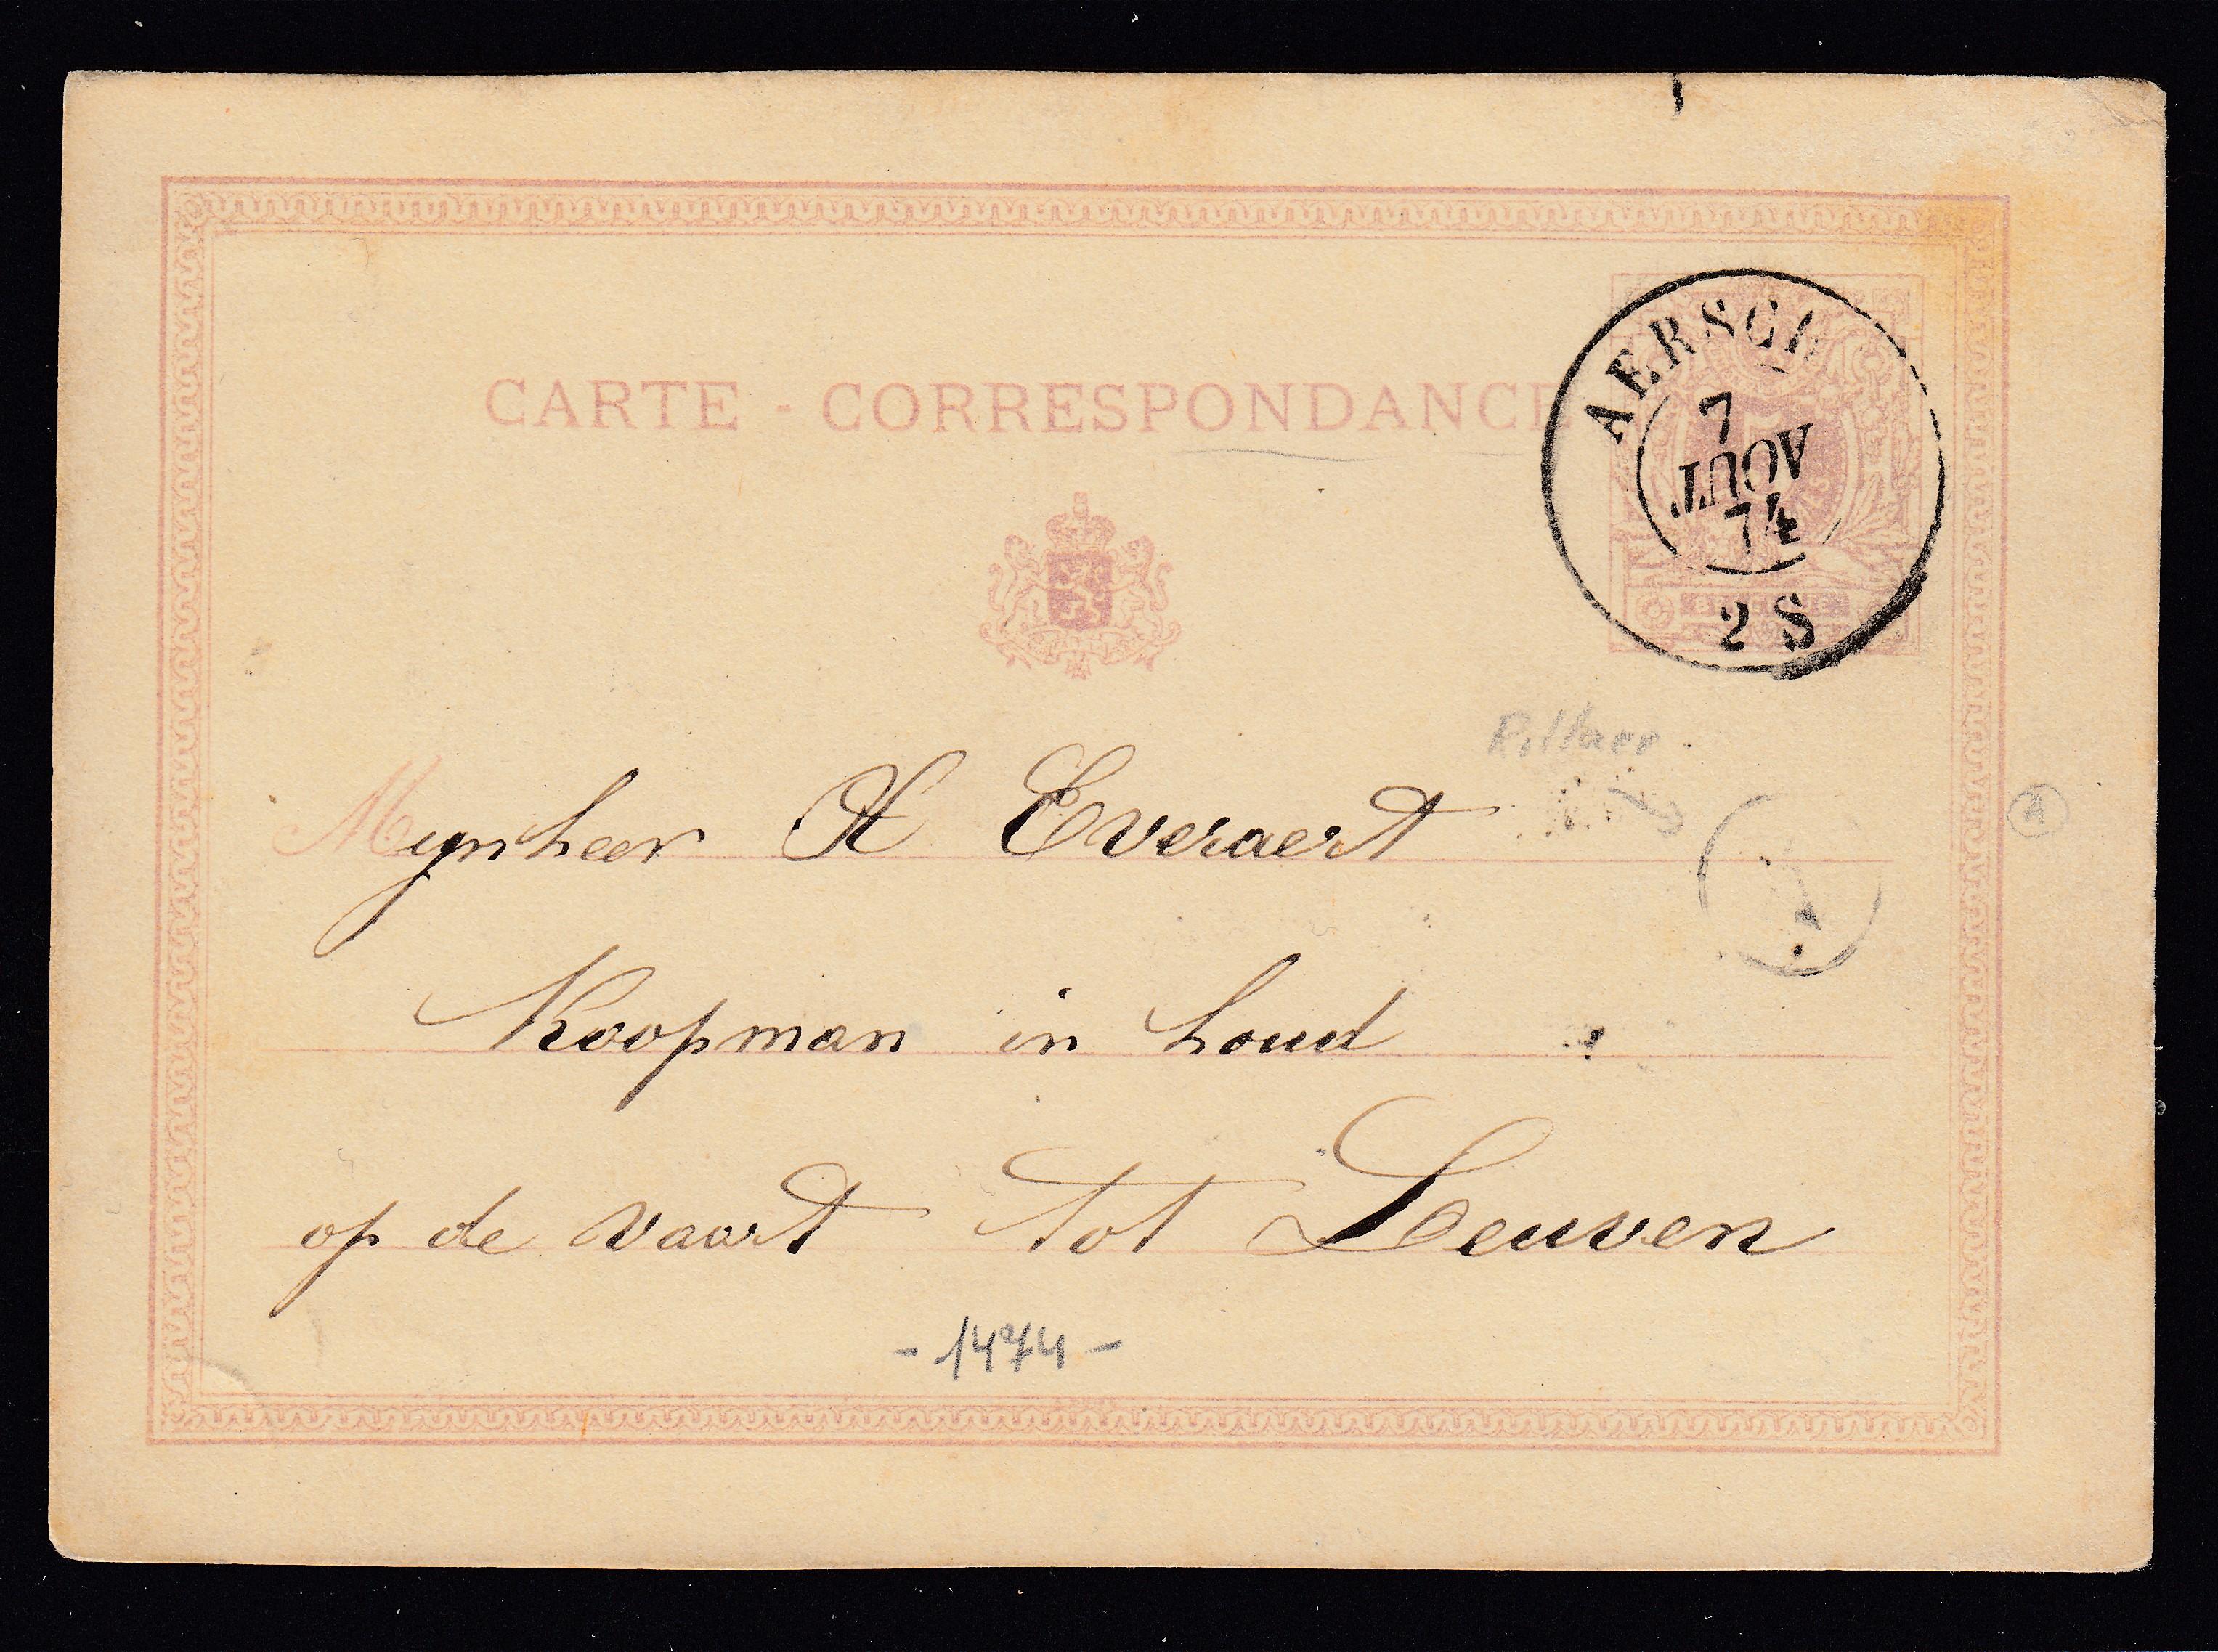 CARTE - CORRESPONDANCE
AERSCH
7
AOUT
74
2 S
BELGIQUE
Rillaer
Mynheer H Everaert
A
Koopman in houd
op de vaart tot Leuven
- 1474 -